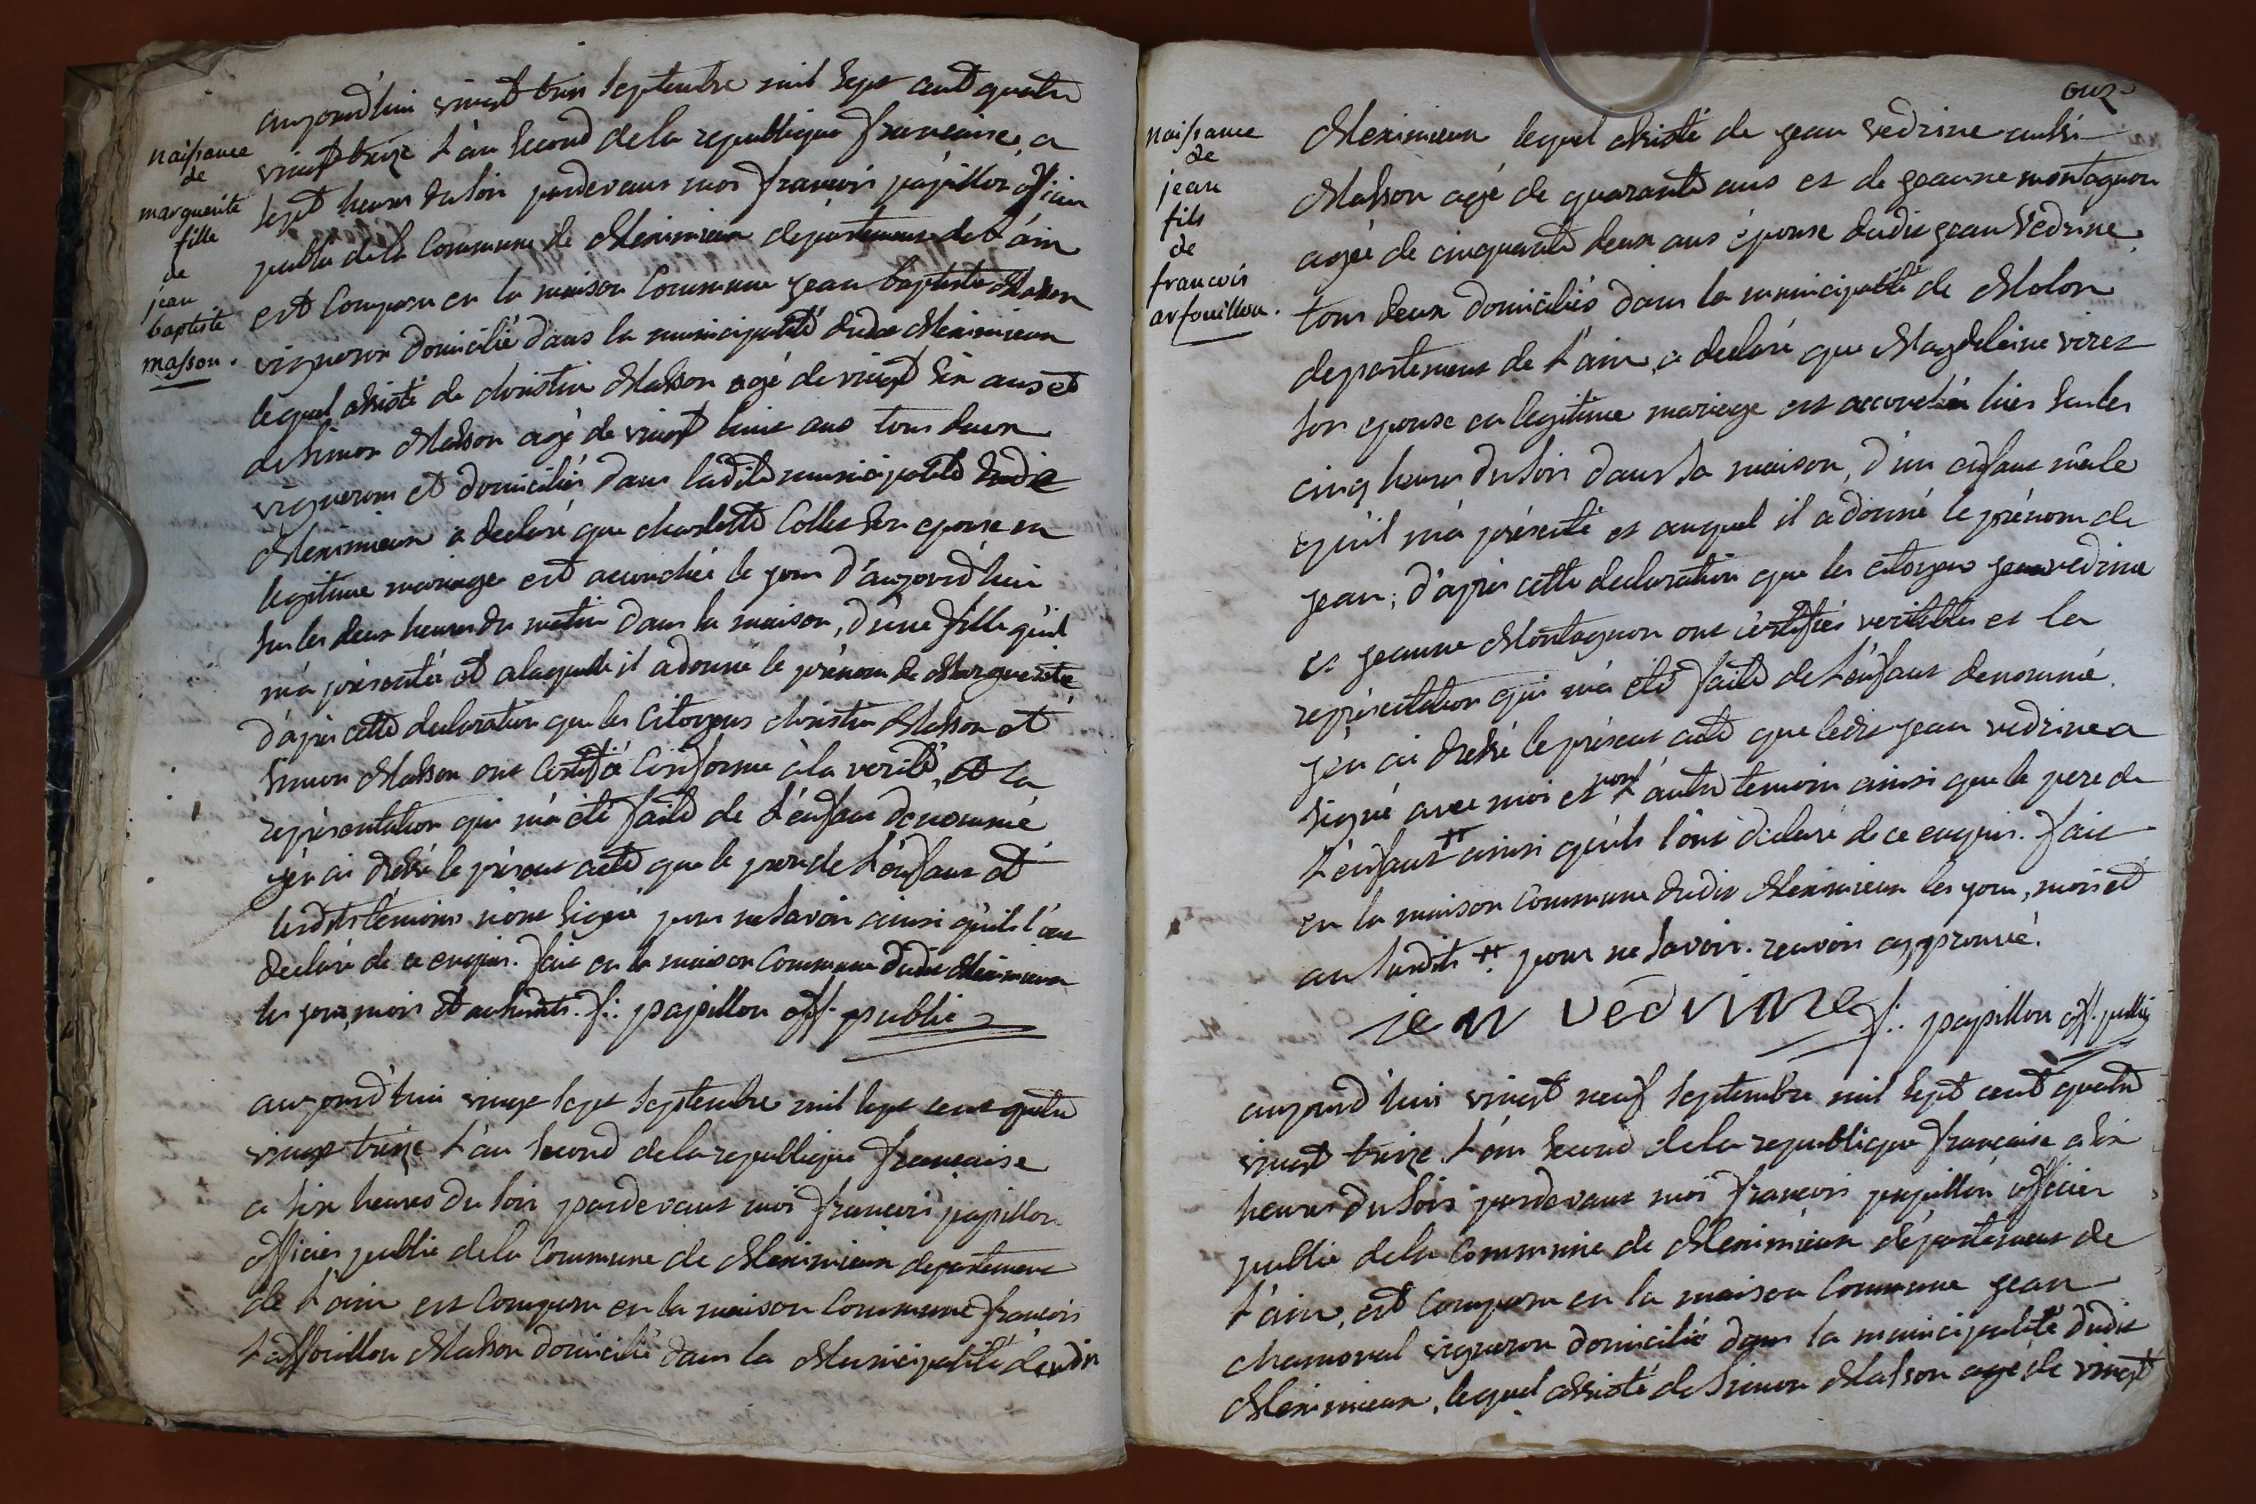 naissance
de
marguerite
fille
de
jean
baptiste
masson.
aujourd'hui vingt trois septembre mil sept cent quatre
vingt treize l'an second de la republique francaise, a
sept heures du soir pardevant moi francois papillon officier
public de la commune de Meximieux departement de l'ain
est comparu en la maison commune jean baptiste Masson
vigneron domicilié dans la municipalité dudit Meximieux
lequel assisté de christin Masson agé de vingt six ans et
de simon Masson agé de vingt huit ans tous deux
vignerons et domiciliés dans ladite municipalité dudit
Meximieux a declaré que charlotte Collet son epouse en
legitime mariage est accouchée le jour d'aujourd'hui
sur les deux heures du matin dans la maison, d'une fille qu'il
m'a présentée et a laquelle il a donné le prénom de Marguerite
d'après cette declaration que les citoyens christin Masson et
simon Masson ont certifié conforme à la verité, et la
représentation qui m'a été faite de l'enfant denommé
j'en ai dressé le présent acte que le pere de l'enfant et
lesdits témoins n'ont signé pour ne savoir ainsi qu'ils l'ont
declaré de ce enquis. fait en la maison commune dudit Meximieux
les jour, mois et an susdits. f: papillon off. public
aujourd'hui vingt sept septembre mil sept cent quatre
vingt treize l'an second de la republique francaise
a six heures du soir pardevant moi francois papillon
officier public de la commune de Meximieux departement
de l'ain est comparu en la maison commune francois
Masson domicilié dans la Municipalité dudit
onze
naissance
de
jean
fils
de
francois
arfouillou.
Meximieux lequel assisté de jean vedrine aussi
Masson agé de quarante ans et de jeanne montagnon
agée de cinquante deux ans épouse dudit jean Vedrine
tous deux domiciliés dans la municipalité de Molon
departement de l'ain, a declaré que Magdeleine virez
son epouse en legitime mariage est accouchée hier sur les
cinq heures du soir dans sa maison, d'un enfant mâle
qu'il m'a présenté et auquel il a donné le prénom de
jean; d'après cette declaration que les citoyens jean vedrine
et jeanne Montagnon ont certifiés veritables et la
représentation qui m'a été faite de l'enfant denommé.
j'en ai dressé le présent acte que ledit jean vedrine a
signé avec moi et non l'autre temoin ainsi que le pere de
l'enfant # ainsi qu'ils l'ont déclaré de ce enquis. fait
en la maison commune dudit Meximieux les jour, mois et
an susdits # pour ne savoir. renvoi approuvé.
jean vedrine f: papillon off. public
aujourd'hui vingt neuf septembre mil sept cent quatre
vingt treize l'an second de la republique francaise a six
heures du soir pardevant moi francois papillon officier
public de la commune de Meximieux département de
l'ain, est comparu en la maison commune jean
chamoval vigneron domicilié dans la municipalité dudit
Meximieux, lequel assisté de simon Masson agé de vingt